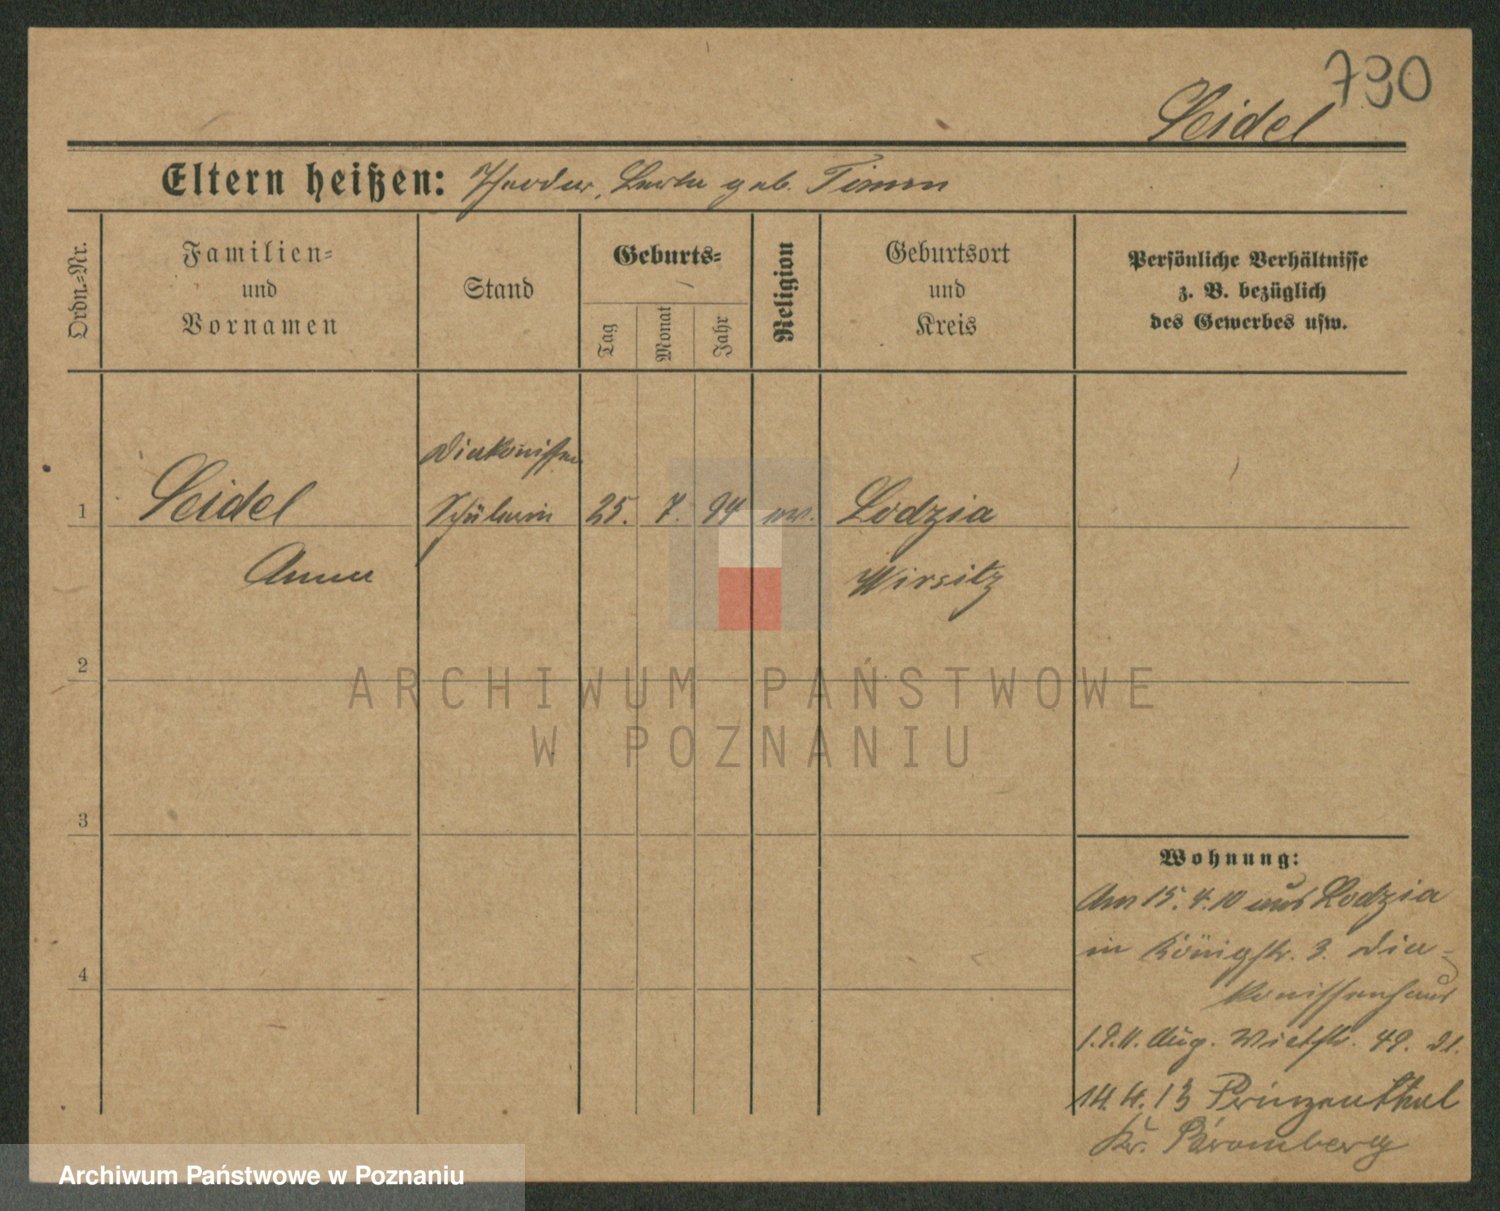 790
Seidel
Eltern heißen: Theodor, Berta geb. Timm
Ordn.-Nr.
Familien-
und
Vornamen
Stand
Geburts-
Tag
Monat
Jahr
Religion
Geburtsort
und
Kreis
Persönliche Verhältnisse
z. B. bezüglich
des Gewerbes usw.
Diakonissen
1 Seidel Schülerin 25. 7. 94 ev. Lodzia
Anna Wirsitz
2
3
4
Wohnung:
Am 15.4.10 aus Lodzia
in Königstr. 3. Dia-
konissenhaus
1.9.11. Aug. Victstr. 49.
14.4.13 Prinzenthal
Kr. Bromberg
ARCHIWUM PAŃSTWOWE
W POZNANIU
Archiwum Państwowe w Poznaniu